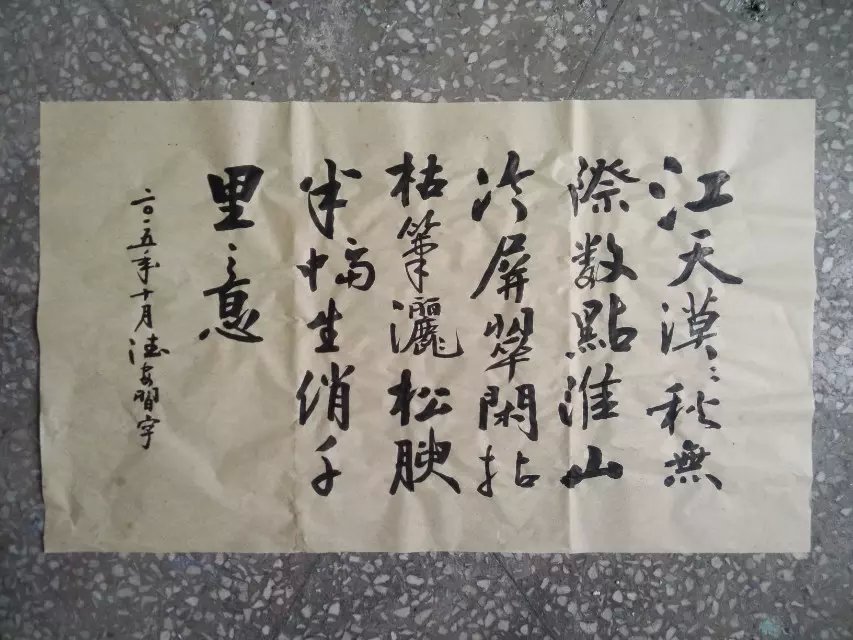 江天漠〻秋無
際數點淮山
冷屏翠閑拈
枯筆灑松腴
半幅生綃千
里〻意
二〇一五年十月德安習字